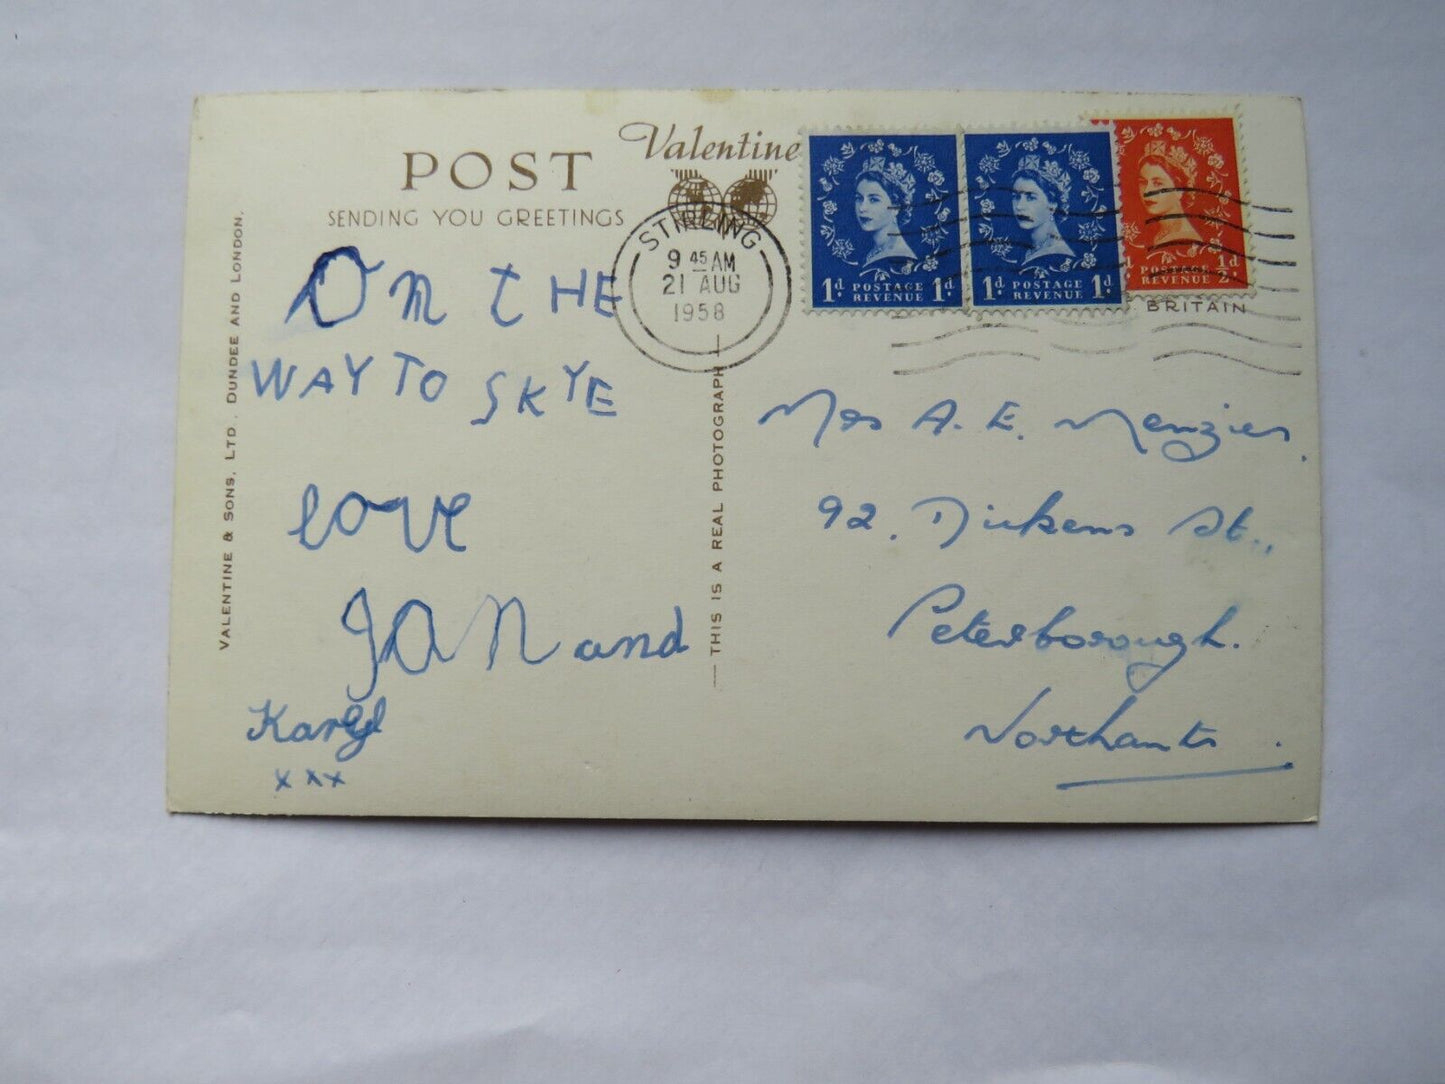 POST
Valentine
SENDING YOU GREETINGS
STIRLING
9 45 AM
21 AUG
1958
1d. POSTAGE REVENUE 1d.
1d. POSTAGE REVENUE 1d.
POSTAGE REVENUE ½d.
BRITAIN
On tHE
WAY TO SKYE
love
JAN and
Karel
x x x
VALENTINE & SONS, LTD. DUNDEE AND LONDON.
— THIS IS A REAL PHOTOGRAPH —
Mrs A. E. Menzies.
92, Dickens St.,
Peterborough.
Northants.